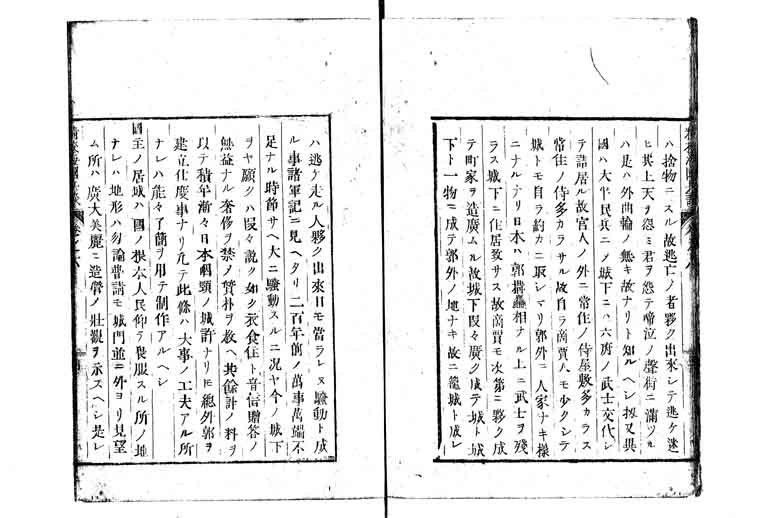 ハ捨物ニスル故逃亡ノ者夥ク出來シテ逃ケ迷
ヒ其上天ヲ怨ミ君ヲ怨テ啼泣ノ聲街ニ滿ツル
ハ是ハ外曲輪ノ無キ故ナリト知ルヘシ扨又異
國ハ大半民兵ニノ城下ニハ六房ノ武士交代シ
テ詰居ル故官人ノ外ニ常住ノ侍屋敷多カラス
常住ノ侍多カラサル故自ラ商賈ハモ少クシテ
城トモ自ラ約カニ取シマリ郭外ニ人家ナキ様
ニナルナリ日本ハ郭搆麤相ナル上ニ武士ヲ殘
ラス城下ニ住居致サス故商賈モ次第ニ夥ク成
テ町家ヲ造廣ムル故城下段々廣ク成テ城ト城
下ト一物ニ成テ郭外ノ地ナキ故ニ籠城ト成レ
ハ逃ケ走ル人夥ク出來目モ當ラレヌ騷動ト成
ル事諸軍記ニ見ヘタリ二百年前ノ萬事萬端不
足ナル時節サヘ大ニ騷動スルニ况ヤ今ノ城下
ヲヤ願クハ段々說ク如ク衣食住ト音信贈答ノ
無益ナル奢侈ヲ禁ノ質朴ヲ教ヘ其餘計ノ料ヲ
以テ積年漸々日本國頭ノ城許ナリヒ總外郭ヲ
建立仕度事ナリ凢テ此條ハ大事ノ工夫アル所
ナレハ能々了簡ヲ用テ制作アルヘシ
國主ノ居城ハ國ノ根本人民仰テ畏服スル所ノ地
ナレハ地形ハ勿論普請モ城門並ニ外ヨリ見望
ム所ハ廣大美麗ニ造營ノ壯觀ヲ示スヘシ是レ